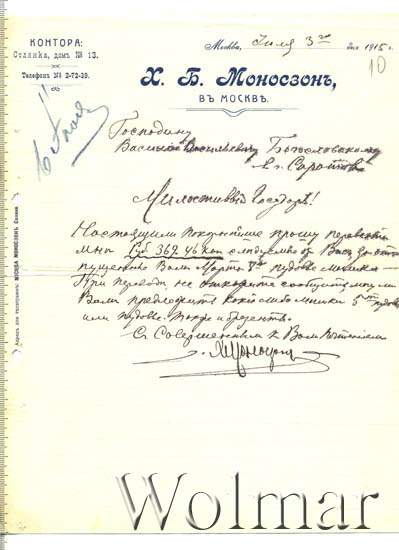 КОНТОРА:
Солянка, домъ № 13.
Телефонъ № 2-72-39.
Москва, Іюля 3го дня 1915 г.
10
Х. Б. Моносзонъ,
ВЪ МОСКВѢ.
6 Іюля
Господину
Василію Васильевичу Богословскому
в г. Саратовъ
Милостивый Государь!
Настоящимъ покорнѣйше прошу перевести
мнѣ Руб. 369. 46 коп слѣдуемые от Васъ за отпу
пущенные Вамъ Марта
При переводѣ не откажите сообщить могу ли
Вамъ предложить какіе либо мѣшки 5ти пудов
или пудов.
Съ Совершеннымъ к Вамъ почтеніемъ
Х Моносзон
Адресъ для телеграммъ: МОСКВА МОНОСЗОНЪ Солянка
Wolmar